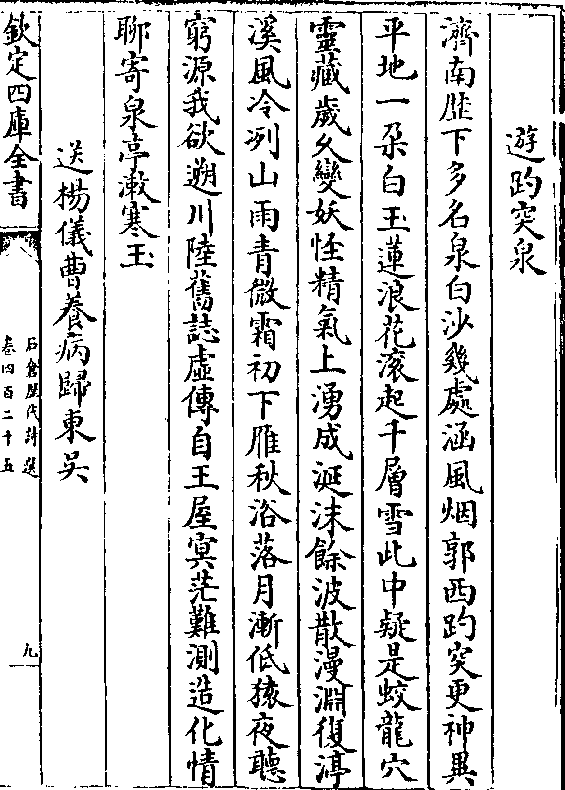 遊趵突泉
濟南歴下多名泉白沙幾處涵風烟郭西趵突更神異
平地一朶白玉蓮浪花滚起千層雪此中疑是蛟龍穴
靈藏歲久變妖怪精氣上湧成涎沫餘波散漫淵復渟
溪風冷冽山雨青微霜初下雁秋浴落月漸低猿夜聽
窮源我欲遡川陸舊誌虚傳自王屋冥茫難測造化情
聊寄泉亭漱寒玉
送楊儀曹養病歸東吳
欽定四庫全書
石倉歴代詩選
卷四百二十五
九